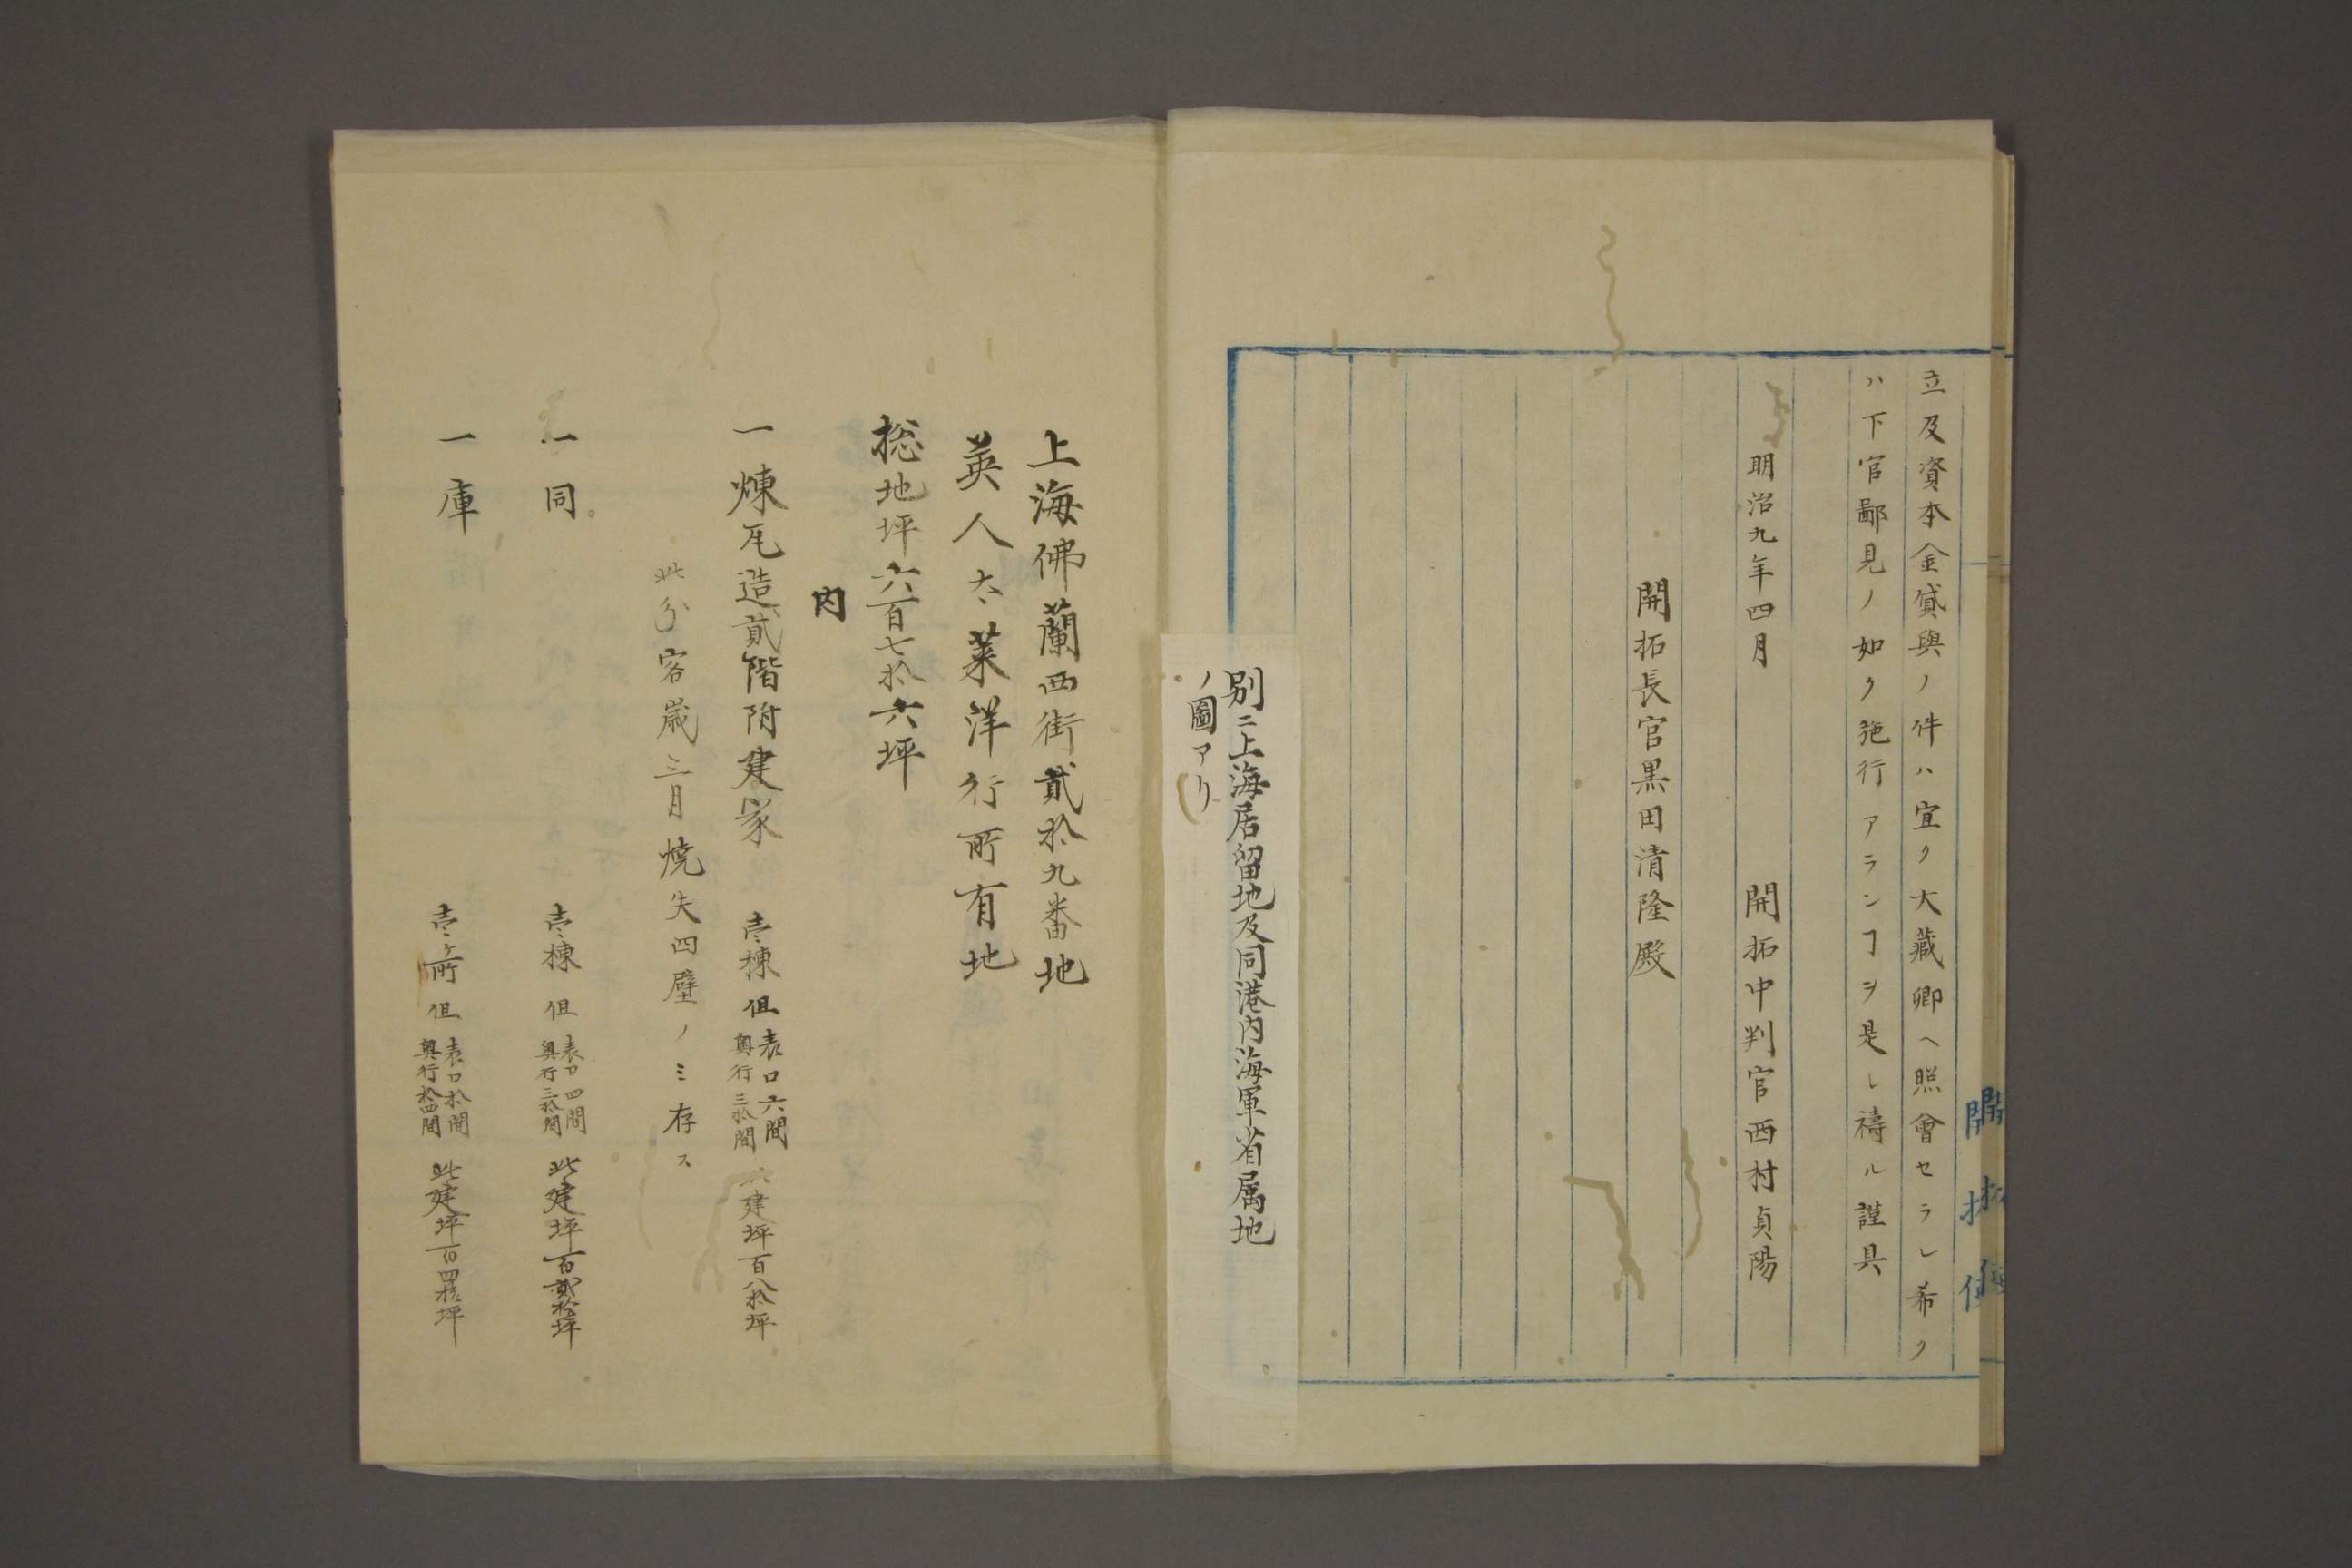 立及資本金貸與ノ件ハ宜ク大藏卿ヘ照會セラレ希ク
ハ下官鄙見ノ如ク施行アランヿヲ是レ禱ル謹具
明治九年四月
開拓中判官西村貞陽
開拓長官黒田清隆殿
別ニ上海居留地及同港内海軍省属地
ノ圖アリ
開拓使
上海佛蘭西街貳拾九番地
英人太莱洋行所有地
総地坪六百七拾六坪
内
一煉瓦造貳階附建家
壱棟但
表口六間
奥行三拾間
此建坪百八拾坪
此分客歳三月焼失四壁ノミ存ス
一同
壱棟但
表口四間
奥行三拾間
此建坪百貳拾坪
一庫
壱ヶ所但
表口拾間
奥行拾四間
此建坪百四拾坪